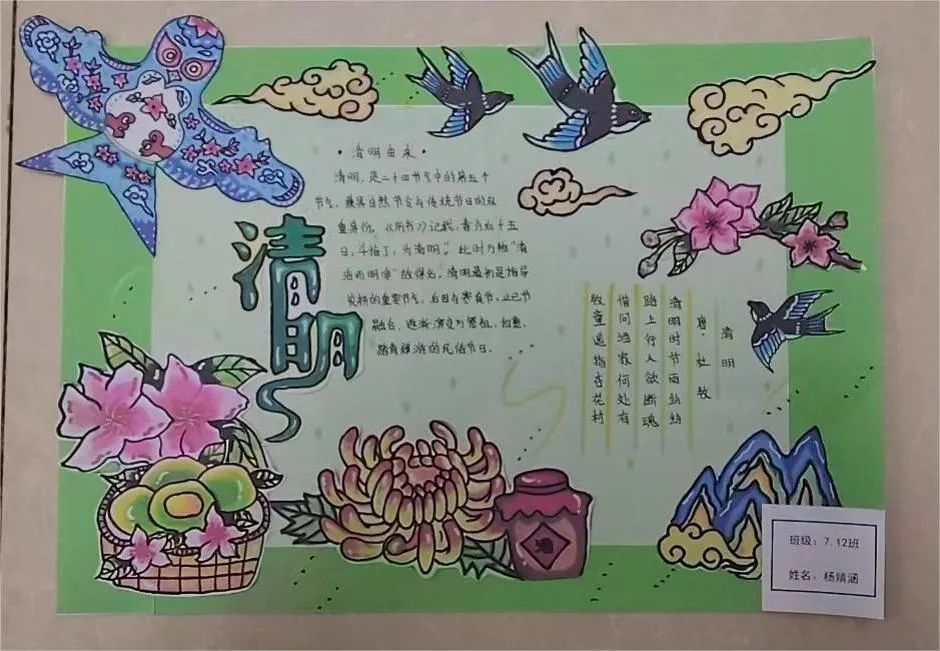 清明由来
清明，是二十四节气中的第五个
节气，兼具自然节气与传统节日的双
重身份。《历书》记载："春分后十五
日，斗指丁，为清明。"此时万物"清
洁而明净"故得名。清明最初是指导
农耕的重要节气，后因与寒食节、上巳节
融合，逐渐演变为祭祖、扫墓、
踏青嬉游的民俗节日。
清明
清明
唐·杜牧
清明时节雨纷纷
路上行人欲断魂
借问酒家何处有
牧童遥指杏花村
酒
班级：7.12班
姓名：杨婧涵